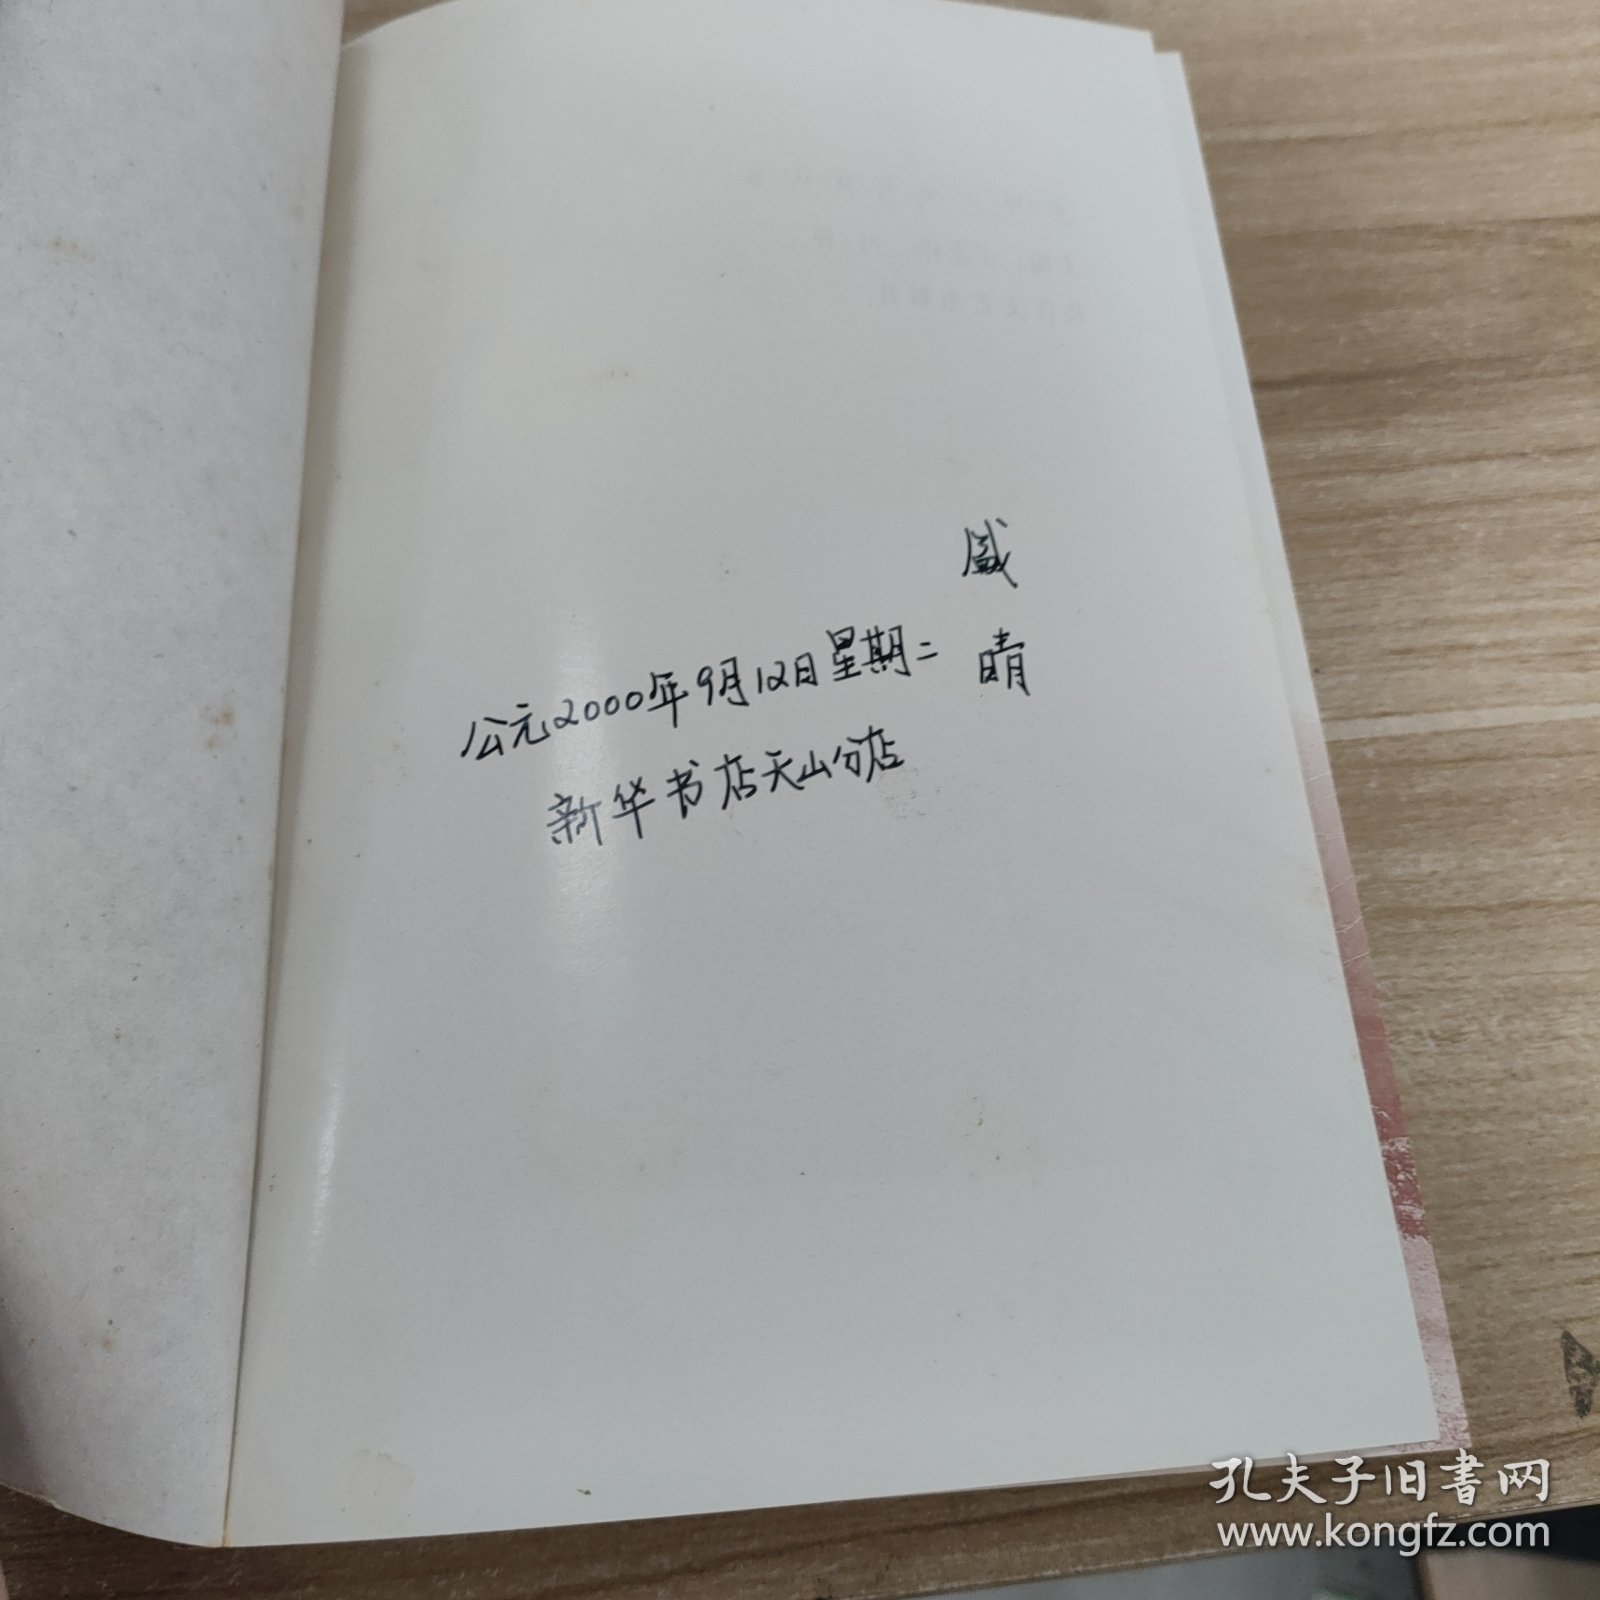 公元2000年9月12日星期二
新华书店天山分店
晴
孔夫子旧書网
www.kongfz.com